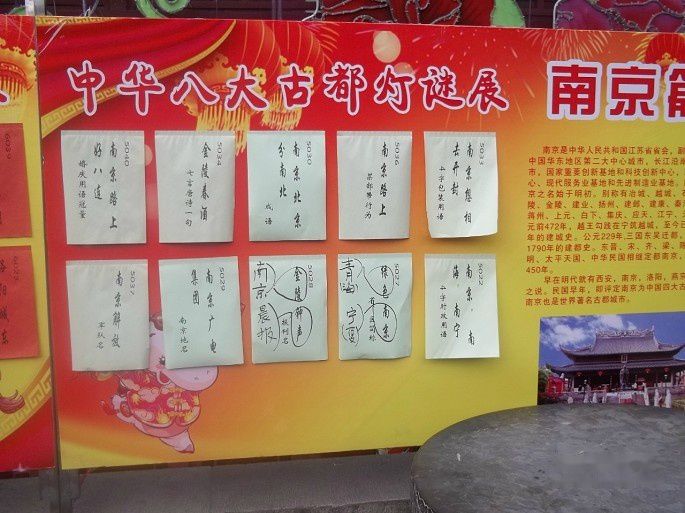 中华八大古都灯谜展
南京
5040
南京路上
好八连
婚庆用语冠量
5034
金陵春酒
七言唐诗一句
南京北京
分南北
成语
5036
南京路上
5033
南京想相
去开封
4字包装用语
5037
南京解放
军队名
5029
南京广电
集团
南京地名
5028
金陵钟声
报刊名
南京晨报
绿色南京
青海
宁夏
南京,南
海,南宁
南京是中华人民共和国江苏省省会,副
中国华东地区第二大中心城市,长江沿岸
市,国家重要创新基地和科技创新中心,
心、现代服务业基地和先进制造业基地。
京之名始于明初。别称有冶城、越城、石
陵、金陵、建业、扬州、建邺、建康、秦淮
蒋州、上元、白下、集庆、应天、江宁、天
元前472年,越王勾践在宁筑越城,至今已
年的建城史。公元229年,三国东吴迁都,
1790年的建都史。东晋、宋、齐、梁、陈
明、太平天国、中华民国相继定都南京,
450年。
早在明代就有西安,南京,洛阳,燕京
之说。民国早年,即评定南京为中国四大古
南京也是世界著名古都城市。